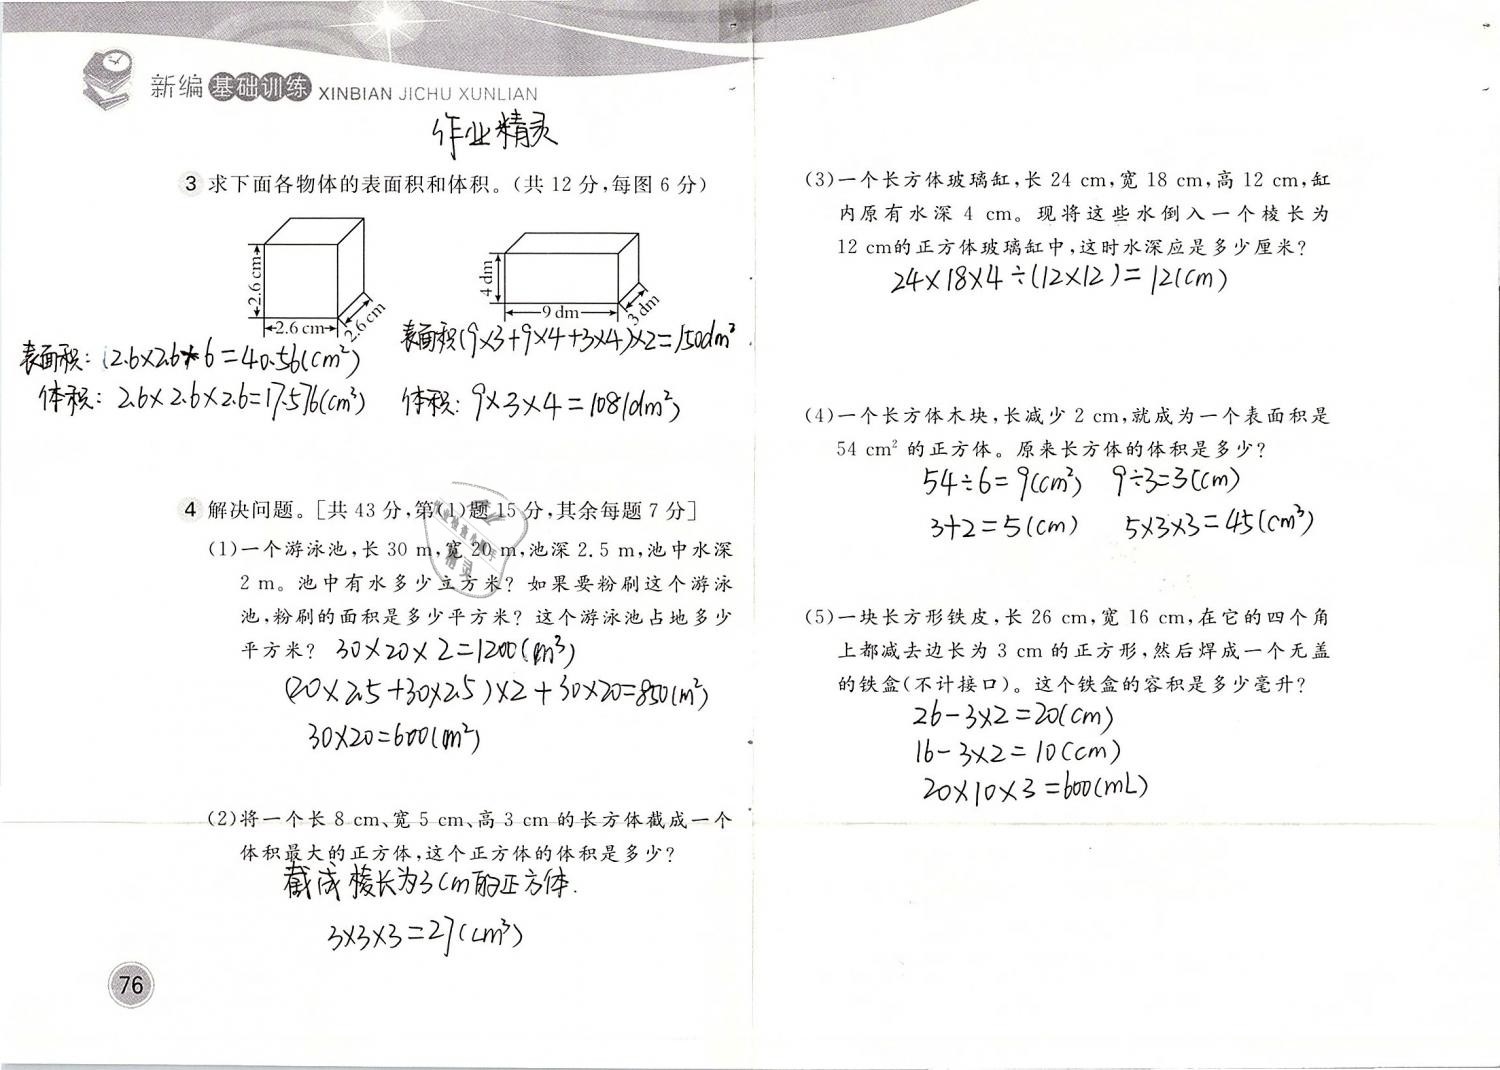 新编基础训练 XINBIAN JICHU XUNLIAN
作业精灵
3 求下面各物体的表面积和体积。(共 12 分,每图 6 分)
2.6 cm
2.6 cm
2.6 cm
4 dm
9 dm
3 dm
表面积：(2.6×2.6×6=40.56(cm²)
体积：2.6×2.6×2.6=17.576(cm³)
表面积(9×3+9×4+3×4)×2=150dm²
体积：9×3×4=108(dm³)
4 解决问题。[共 43 分,第(1)题 15 分,其余每题 7 分]
(1)一个游泳池,长 30 m,宽 20 m,池深 2.5 m,池中水深
2 m。池中有水多少立方米？如果要粉刷这个游泳
池,粉刷的面积是多少平方米？这个游泳池占地多少
平方米？ 30×20×2=1200(m³)
(20×2.5+30×2.5)×2+30×20=850(m²)
30×20=600(m²)
(2)将一个长 8 cm、宽 5 cm、高 3 cm 的长方体截成一个
体积最大的正方体,这个正方体的体积是多少？
截成棱长为3cm的正方体.
3×3×3=27(cm³)
76
(3)一个长方体玻璃缸,长 24 cm,宽 18 cm,高 12 cm,缸
内原有水深 4 cm。现将这些水倒入一个棱长为
12 cm的正方体玻璃缸中,这时水深应是多少厘米？
24×18×4÷(12×12)=12(cm)
(4)一个长方体木块,长减少 2 cm,就成为一个表面积是
54 cm² 的正方体。原来长方体的体积是多少？
54÷6=9(cm²) 9÷3=3(cm)
3+2=5(cm) 5×3×3=45(cm³)
(5)一块长方形铁皮,长 26 cm,宽 16 cm,在它的四个角
上都减去边长为 3 cm 的正方形,然后焊成一个无盖
的铁盒(不计接口)。这个铁盒的容积是多少毫升？
26-3×2=20(cm)
16-3×2=10(cm)
20×10×3=600(mL)